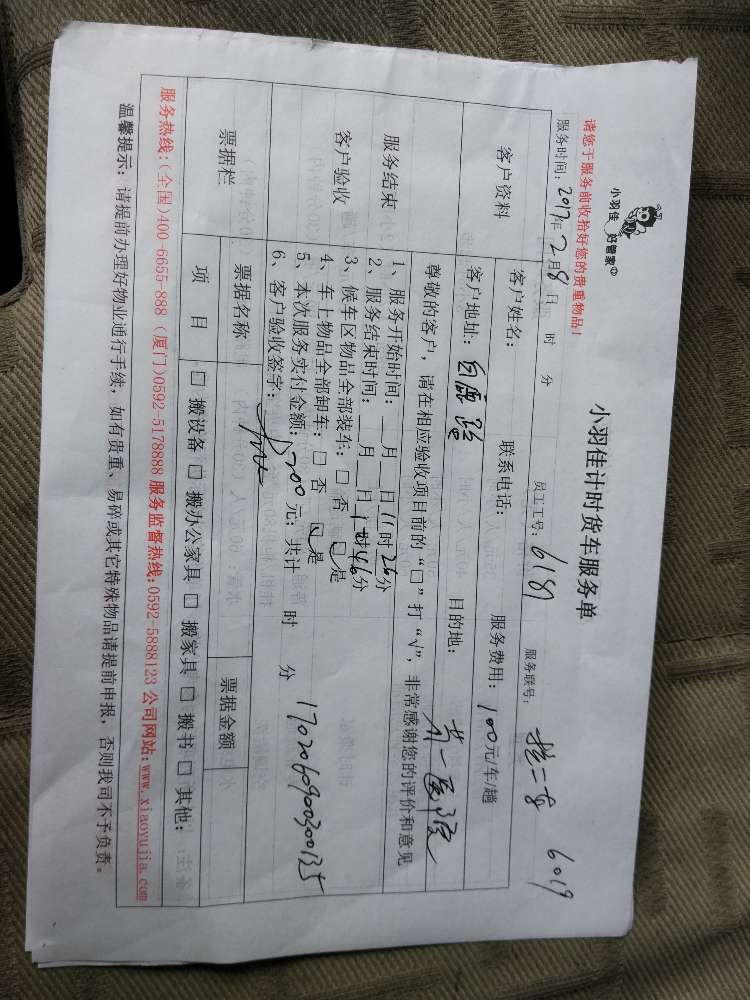 小羽佳 好管家
小羽佳计时货车服务单
请您于服务前收拾好您的贵重物品!
服务时间: 2017年 2月 8日 时 分 员工工号: 6187 服务联号: 6019
客户资料 客户姓名: 联系电话: 服务费用: 100元/车/趟
客户地址: 白鹭路 目的地: 第一医院
尊敬的客户，请在相应验收项目前的“□”打“√”，非常感谢您的评价和意见
服务结束
客户验收
1、服务开始时间: 月 日 11时 26分
2、服务结束时间: 月 日 时 46分
3、候车区物品全部装车: □ 否 □ 是
4、车上物品全部卸车: □ 否 □ 是
5、本次服务实付金额: 200元; 共计 时 分
6、客户验收签字: 1702060900300135
票据栏 票据名称 票据金额
项 目 □ 搬设备 □ 搬办公家具 □ 搬家具 □ 搬书 □ 其他:
服务热线:(全国)400-6655-888 (厦门)0592-5178888 服务监督热线:0592-5888123 公司网站:www.xiaoyujia.com
温馨提示: 请提前办理好物业通行手续, 如有贵重、易碎或其它特殊物品请提前申报, 否则我司不予负责。